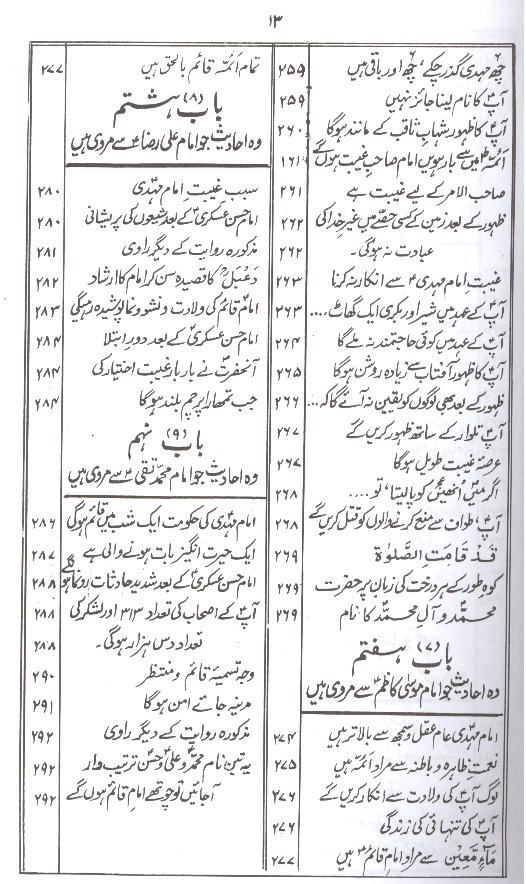 ۱۳
چھ مہدی گذر چکے، چھ اور باقی ہیں ۲۵۹
آپؑ کا نام لینا جائز نہیں ۲۵۹
آپؑ کا ظہور شہابِ ثاقب کے مانند ہوگا ۲۶۰
ائمہؑ میں سے بارہویں امام صاحبِ غیبت ہوں گے ۱۶۱
صاحب الامر کے لیے غیبت ہے ۲۶۱
ظہور کے بعد زمین کے کسی حصّے میں غیرِ خدا کی ۲۶۲
عبادت نہ ہوگی۔ ۲۶۲
غیبتِ امام مہدی ؑ سے انکار نہ کرنا ۲۶۳
آپؑ کے عہد میں شیر اور بکری ایک گھاٹ.... ۲۶۳
آپؑ کے عہد میں کوئی حاجتمند نہ ملے گا ۲۶۴
آپؑ کا ظہور آفتاب سے زیادہ روشن ہوگا ۲۶۵
ظہور کے بعد بھی لوگوں کو یقین نہ آئے گا کہ... ۲۶۶
آپؑ تلوار کے ساتھ ظہور کریں گے ۲۶۷
عرصۂ غیبت طویل ہوگا ۲۶۷
اگر میں اُنھیںؑ کو پا لیتا، تو .... ۲۶۸
آپؑ، طواف سے منع کرنے والوں کو قتل کریں گے ۲۶۸
قَدْ قَامَتِ الصَّلوٰۃ ۲۶۹
کوہِ طور کے ہر درخت کی زبان پر حضرت ۲۶۹
محمدؐ و آلِ محمدؐ کا نام ۲۶۹
باب (۷) ہفتم
وہ احادیث جو امام موسیٰ کاظمؑ سے مروی ہیں
امام مہدیؑ عام عقل و سمجھ سے بالاتر ہیں ۲۷۴
نعمتِ ظاہرہ و باطنہ سے مراد ائمہؑ ہیں ۲۷۵
لوگ آپؑ کی ولادت سے انکار کریں گے ۲۷۶
آپؑ کی تنہائی کی زندگی ۲۷۶
مَآءٍ مَّعِیْنٍ سے مراد امامِ قائمؑ ہیں ۲۷۷
تمام ائمہؑ قائم بالحق ہیں ۲۷۷
باب (۸) ہشتم
وہ احادیث جو امام علی رضا ؑ سے مروی ہیں
سببِ غیبتِ امام مہدیؑ ۲۸۰
امام حسن عسکریؑ کے بعد شیعوں کی پریشانی ۲۸۰
مذکورہ روایت کے دیگر راوی ۲۸۱
دَعبَل کا قصیدہ سن کر امام کا ارشاد ۲۸۲
امامِ قائمؑ کی ولادت و نشوونما پوشیدہ رہیگی ۲۸۳
امام حسن عسکریؑ کے بعد دورِ ابتلا ۲۸۴
آنحضرتؑ نے بار بار غیبت اختیار کی ۲۸۴
جب تمھارا پرچم بلند ہوگا ۲۸۴
باب (۹) نہم
وہ احادیث جو امام محمد تقی ؑ سے مروی ہیں
امام مہدیؑ کی حکومت ایک شب میں قائم ہوگی ۲۸۶
ایک حیرت انگیز بات ہونے والی ہے ۲۸۷
امام حسن عسکریؑ کے بعد شدید حادثات رونما ہونگے ۲۸۸
آپؑ کے اصحاب کی تعداد ۳۱۳ اور لشکر کی ۲۸۸
تعداد دس ہزار ہوگی۔ ۲۸۸
وجہِ تسمیۂ قائم و منتظر ۲۹۰
مدینہ جائے امن ہوگا ۲۹۱
مذکورہ روایت کے دیگر راوی ۲۹۲
یہ تین نام محمدؑ و علیؑ و حسنؑ ترتیب وار ۲۹۲
آجائیں تو چوتھے امامِ قائم ہوں گے ۲۹۲